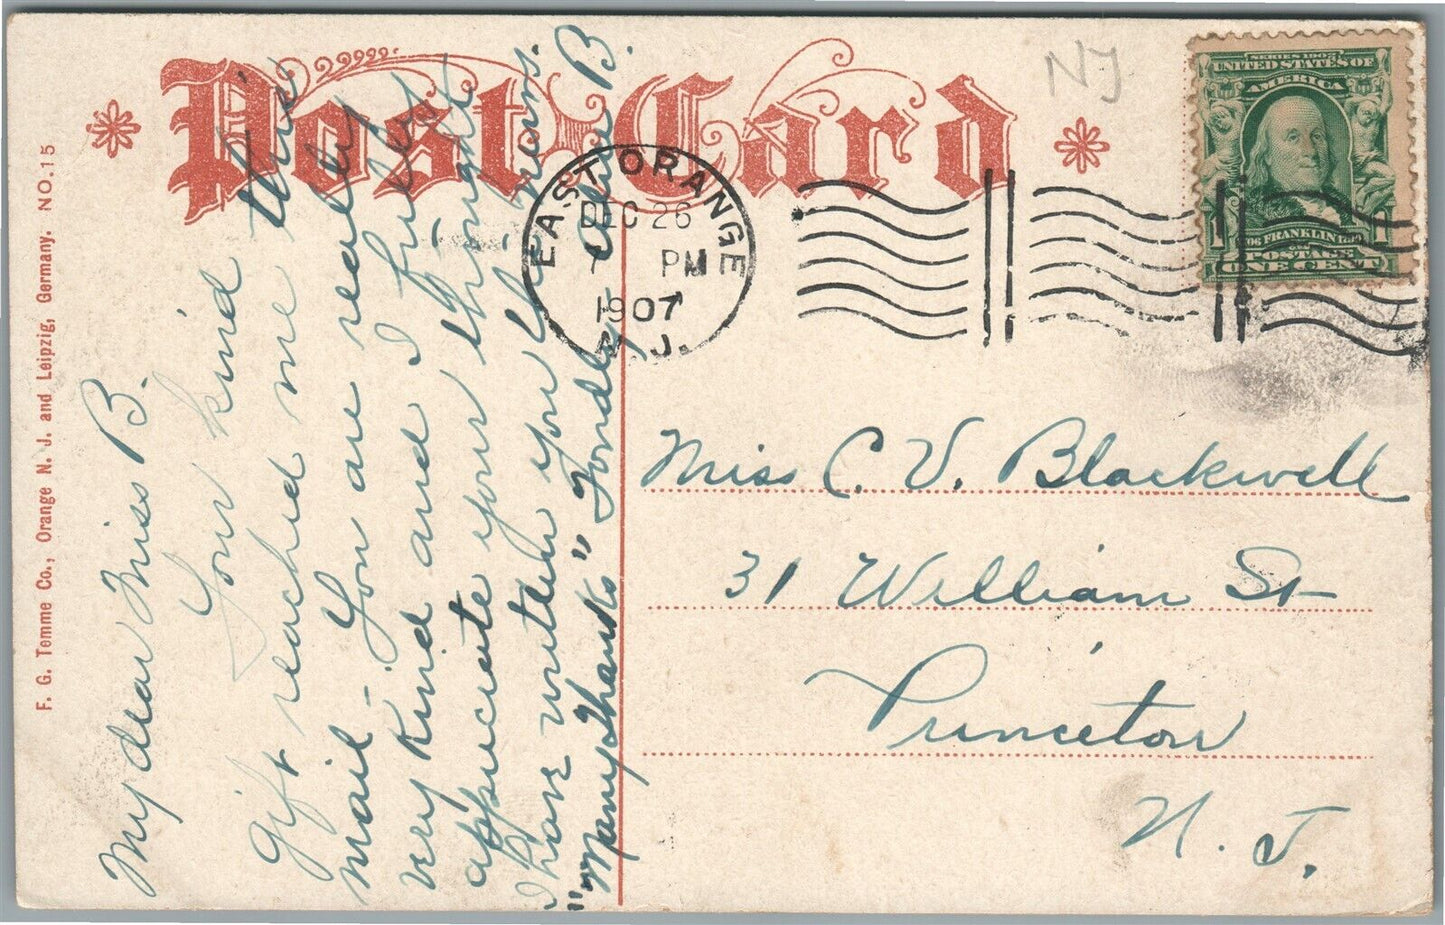 Post Card
NJ
SERIES 1902
UNITED STATES OF
AMERICA
1 FRANKLIN 1
POSTAGE
ONE CENT
EAST ORANGE
DEC 26
7 PM
1907
N.J.
F. G. Temme Co., Orange N. J. and Leipzig, Germany. NO. 15
My dear Miss B.
Your kind
gift reached me thru
mail - You are really
very kind and I fully
appreciate your thought
I have written you the
"Many Thanks" Fondly
B.
Miss C. V. Blackwell
31 William St
Princeton
N. J.